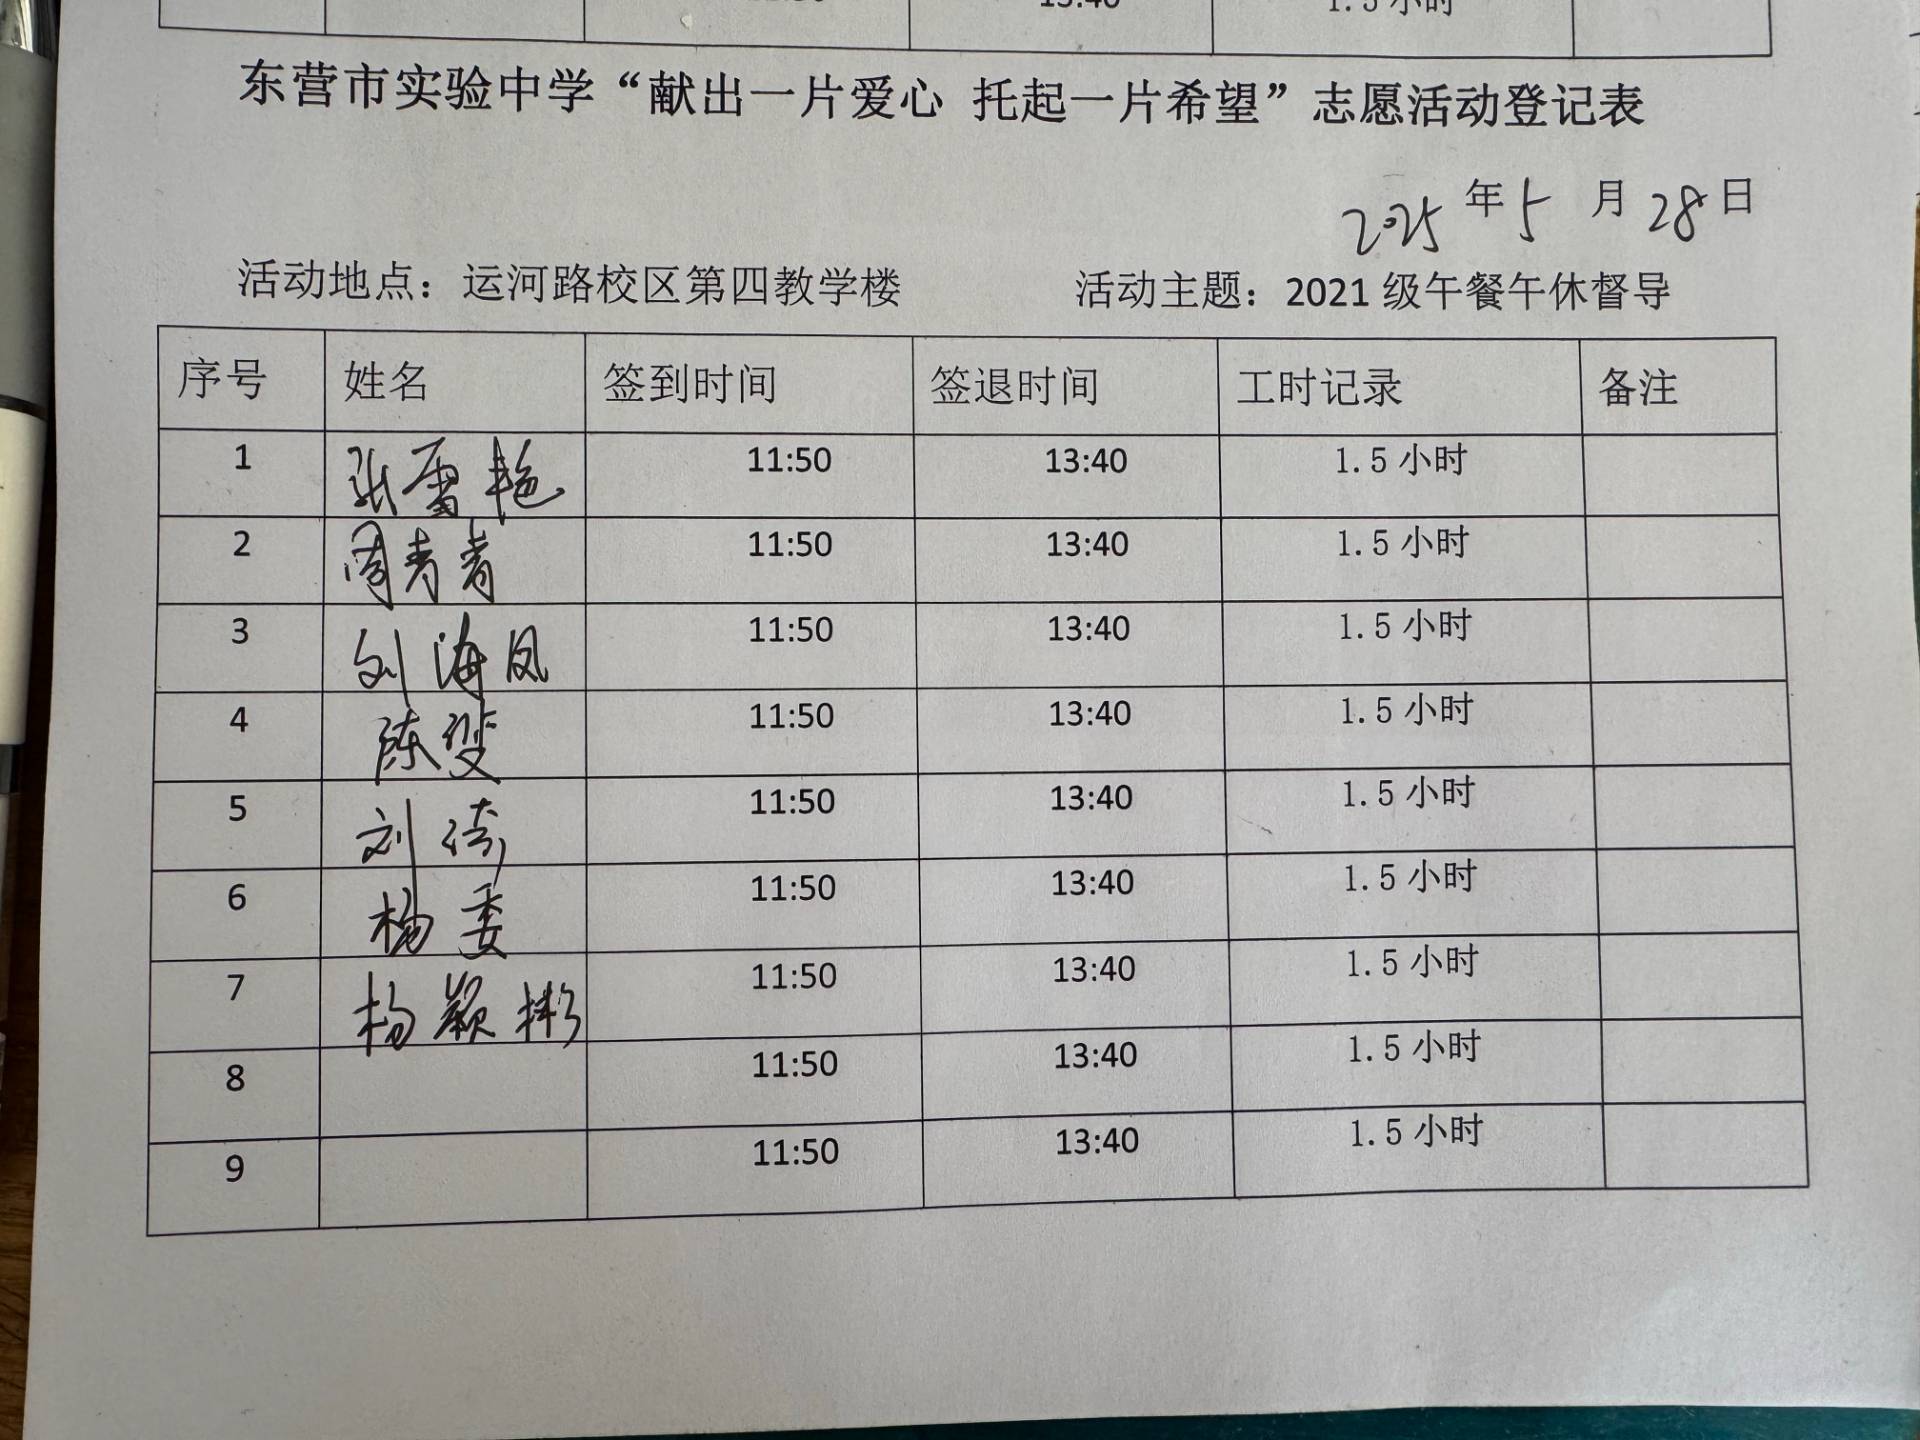 13:40 1.5小时
东营市实验中学“献出一片爱心 托起一片希望”志愿活动登记表
2025年5月28日
活动地点：运河路校区第四教学楼 活动主题：2021级午餐午休督导
序号 姓名 签到时间 签退时间 工时记录 备注
1 张雷艳 11:50 13:40 1.5小时
2 周青青 11:50 13:40 1.5小时
3 刘海凤 11:50 13:40 1.5小时
4 陈 11:50 13:40 1.5小时
5 刘 11:50 13:40 1.5小时
6 杨委 11:50 13:40 1.5小时
7 杨颖彬 11:50 13:40 1.5小时
8 11:50 13:40 1.5小时
9 11:50 13:40 1.5小时